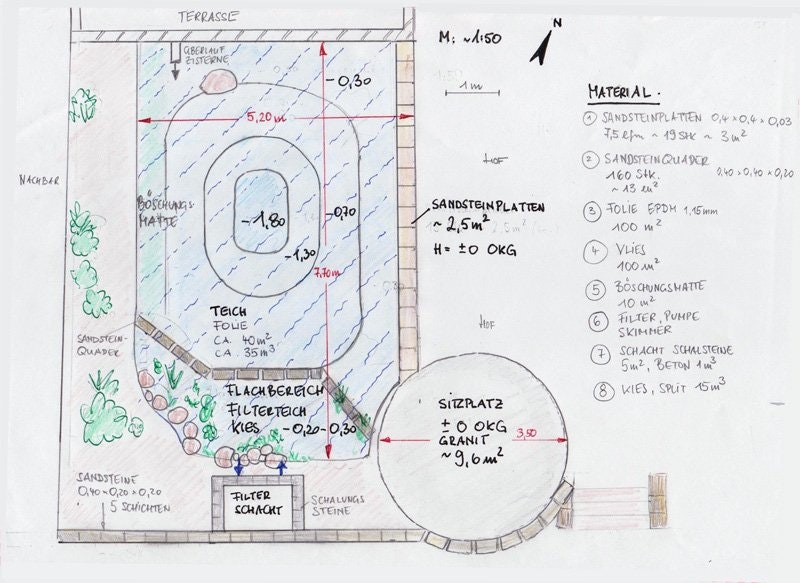 TERRASSE
ÜBERLAUF
ZISTERNE
M: ~1:50
N
1 m
-0,30
5,20 m
NACHBAR
HOF
BÖSCHUNGS-
MATTE
-1,80
-0,70
-1,30
7,70m
SANDSTEINPLATTEN
~ 2,5 m²
H= ±0 OKG
TEICH
FOLIE
CA. 40 m²
CA. 35 m³
HOF
SANDSTEIN-
QUADER
FLACHBEREICH
FILTERTEICH
KIES -0,20-0,30
SITZPLATZ
± 0 OKG
GRANIT
~ 9,6 m²
3,50
SANDSTEINE
0,40×0,20×0,20
5 SCHICHTEN
FILTER
SCHACHT
SCHALUNGS
STEINE
MATERIAL.
① SANDSTEINPLATTEN 0,4×0,4×0,03
7,5 lfm ~ 19 Stk ~ 3 m²
② SANDSTEINQUADER
160 Stk. 0,40×0,40×0,20
~ 13 m²
③ FOLIE EPDM 1,15mm
100 m²
④ VLIES
100 m²
⑤ BÖSCHUNGSMATTE
10 m²
⑥ FILTER, PUMPE
SKIMMER
⑦ SCHACHT SCHALSTEINE
5m², BETON 1m³
⑧ KIES, SPLIT 15 m³